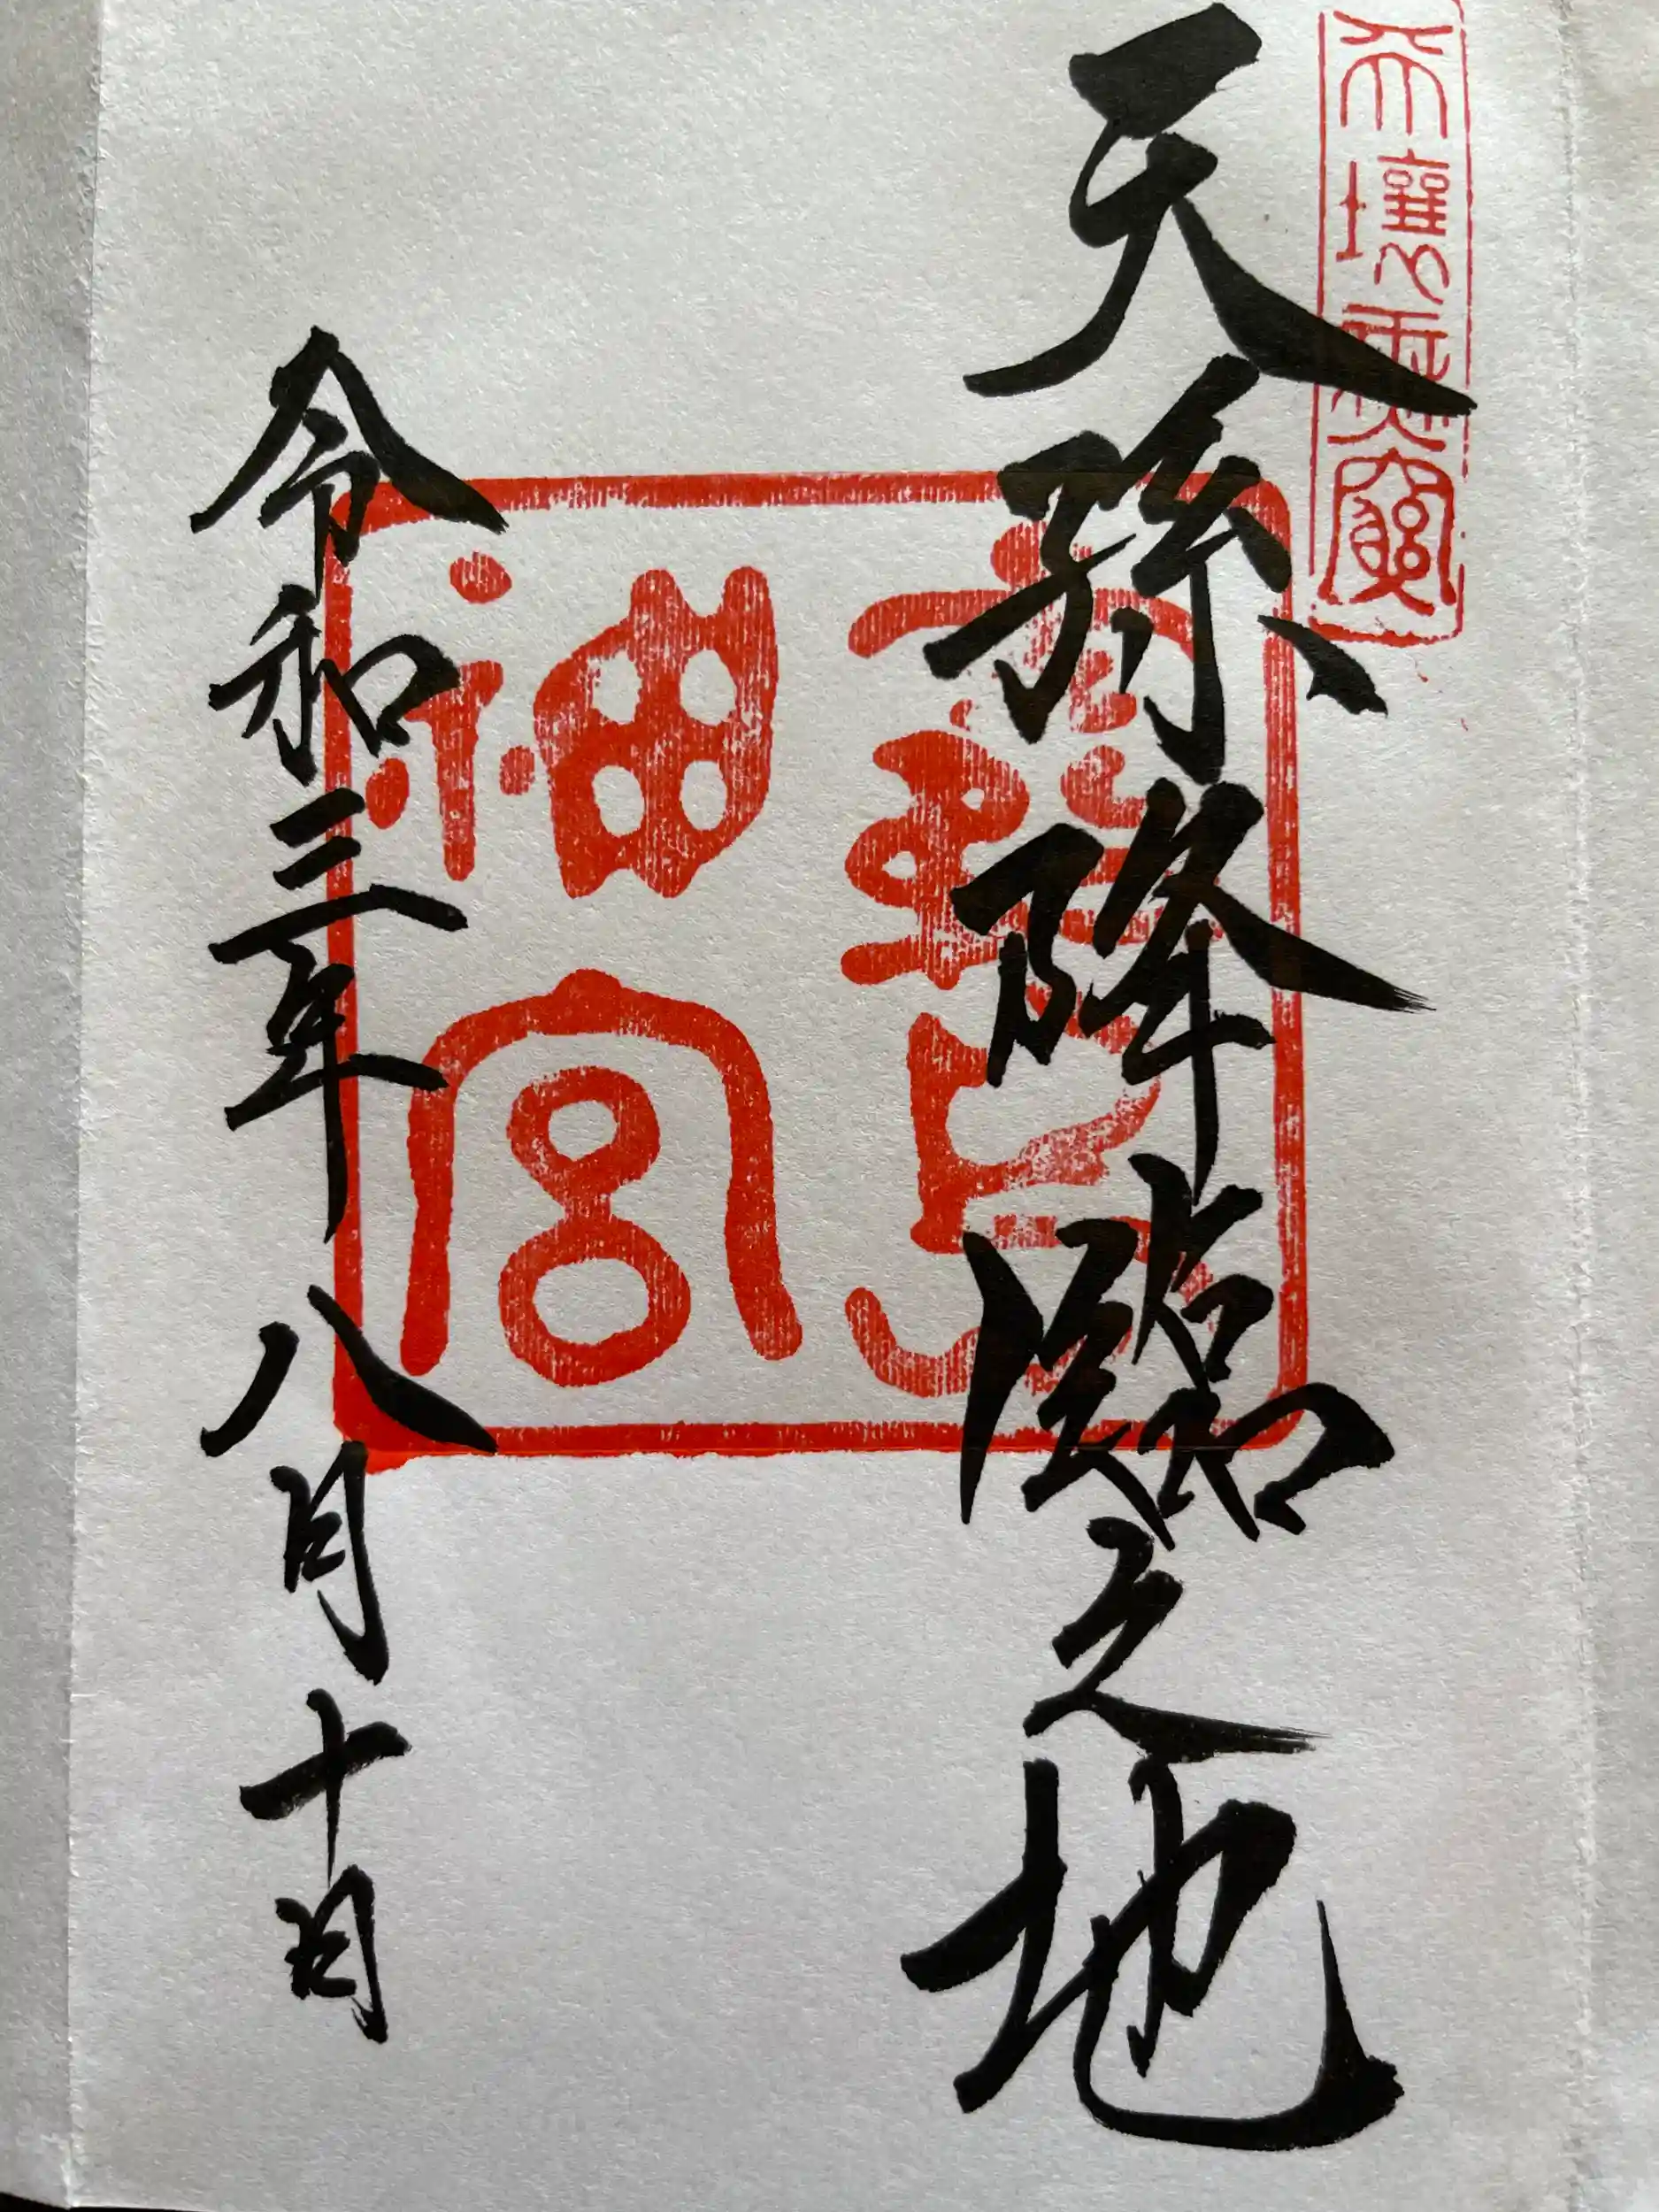 天壤無窮
天孫降臨之地
霧島神宮
令和三年八月十日